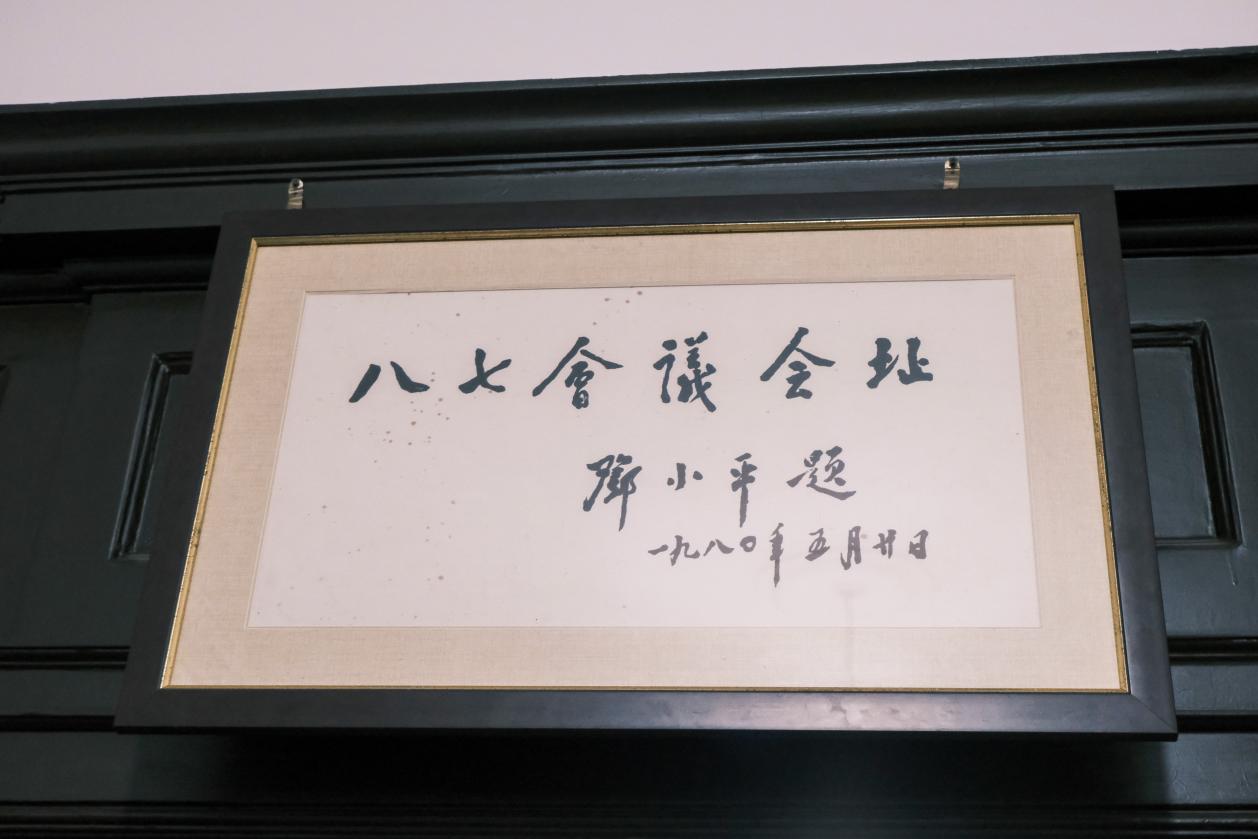 八七會議会址
鄧小平題
一九八〇年五月廿日